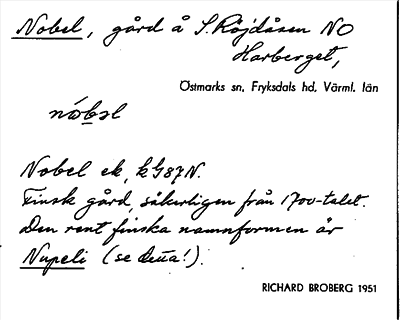 Nobel, gård å S. Röjdåsen NO
Harberget,
Östmarks sn, Fryksdals hd, Värml. län
nåbəl
Nobel ek, kG87N.
Finsk gård, säkerligen från 1700-talet.
Den rent finska namnformen är
Nupeli (se detta!).
RICHARD BROBERG 1951